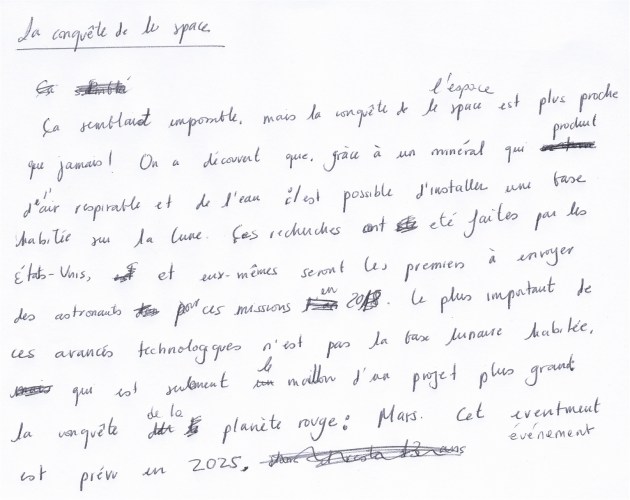 La conquête de le space
Ça semblait
l'espace
Ça semblaut impossible, mais la conquête de le space est plus proche
que jamais! On a découvert que, grâce à un minéral qui produit
d'l'air respirable et de l'eau il est possible d'installer une base
habitée sur la Lune. Ces recherches ont eté faites par les
États-Unis, et eux-mêmes seront les premiers à envoyer
des astronauts pour ces missions en 2018. Le plus important de
ces avancés technologiques n'est pas la base lunaire habitée,
mais qui est seulment le maillon d'un projet plus grand:
la conquête de la planète rouge: Mars. Cet eventment
événement
est prévu en 2025.